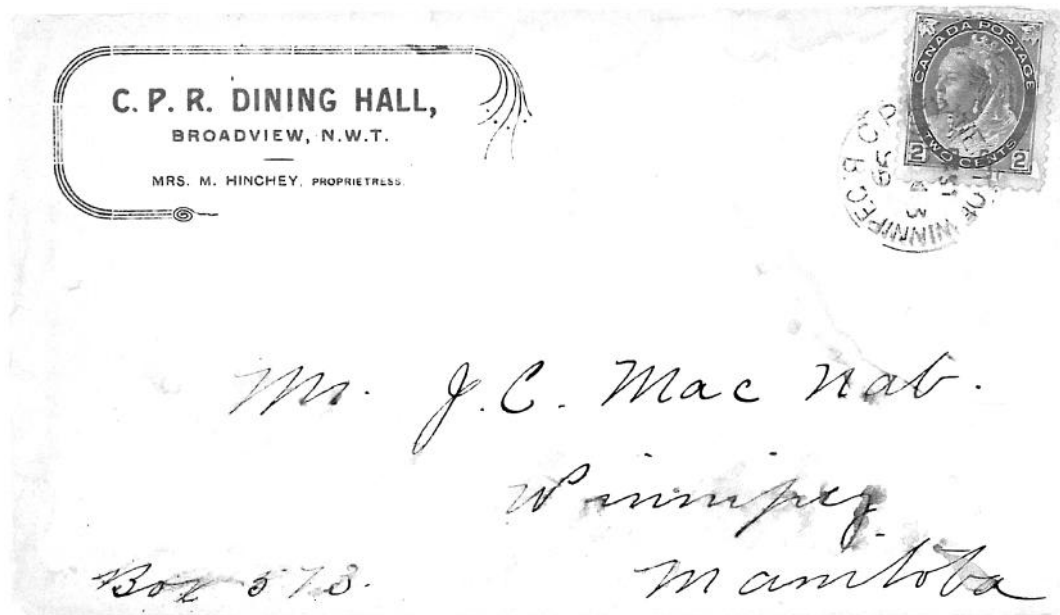 C. P. R. DINING HALL,
BROADVIEW, N.W.T.
MRS. M. HINCHEY, PROPRIETRESS.
CANADA POSTAGE
TWO CENTS
2 2
OF WINNIPEG R
Mr. J. C. Mac Nab.
Winnipeg
Box 573. Manitoba